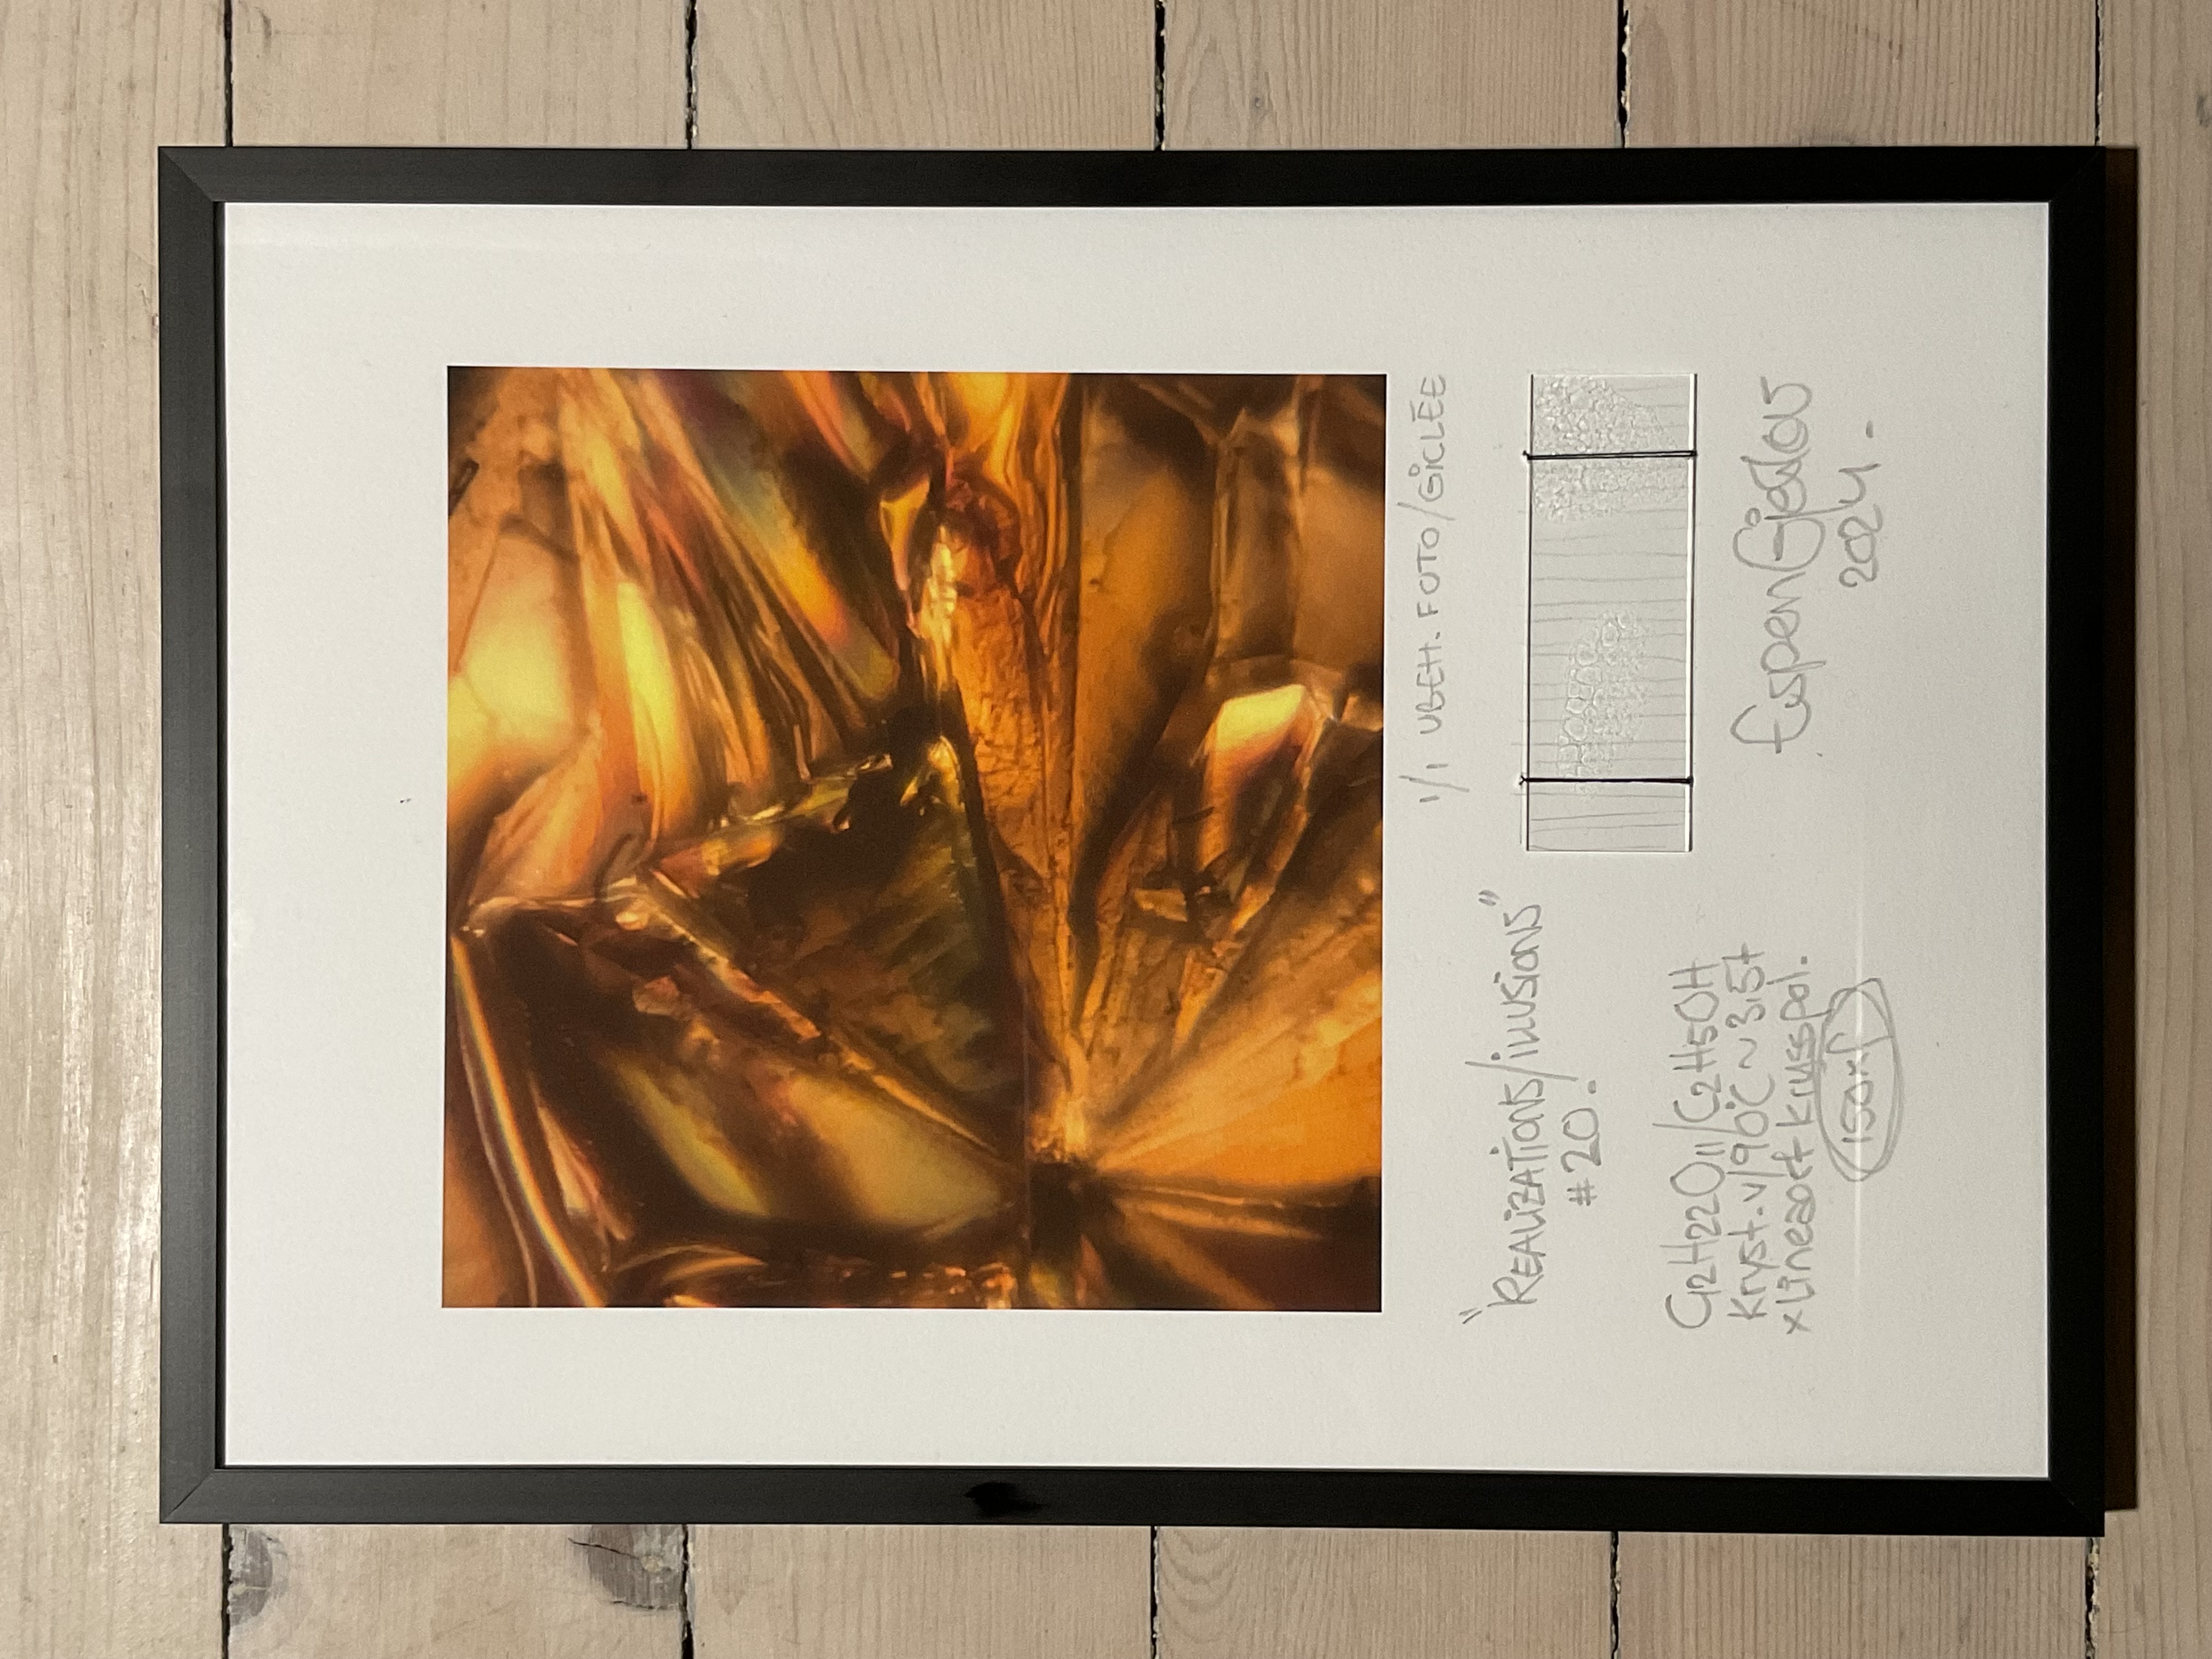 1/1 UBEH. FOTO/GICLÉE
"REALIZATIONS/ILLUSIONS"
#20.
C12H22O11/C2H5OH
Kryst. v/90°C ~ 3,5t
x Lineært krysspol.
150xf
Espen Gjesdov
2024.